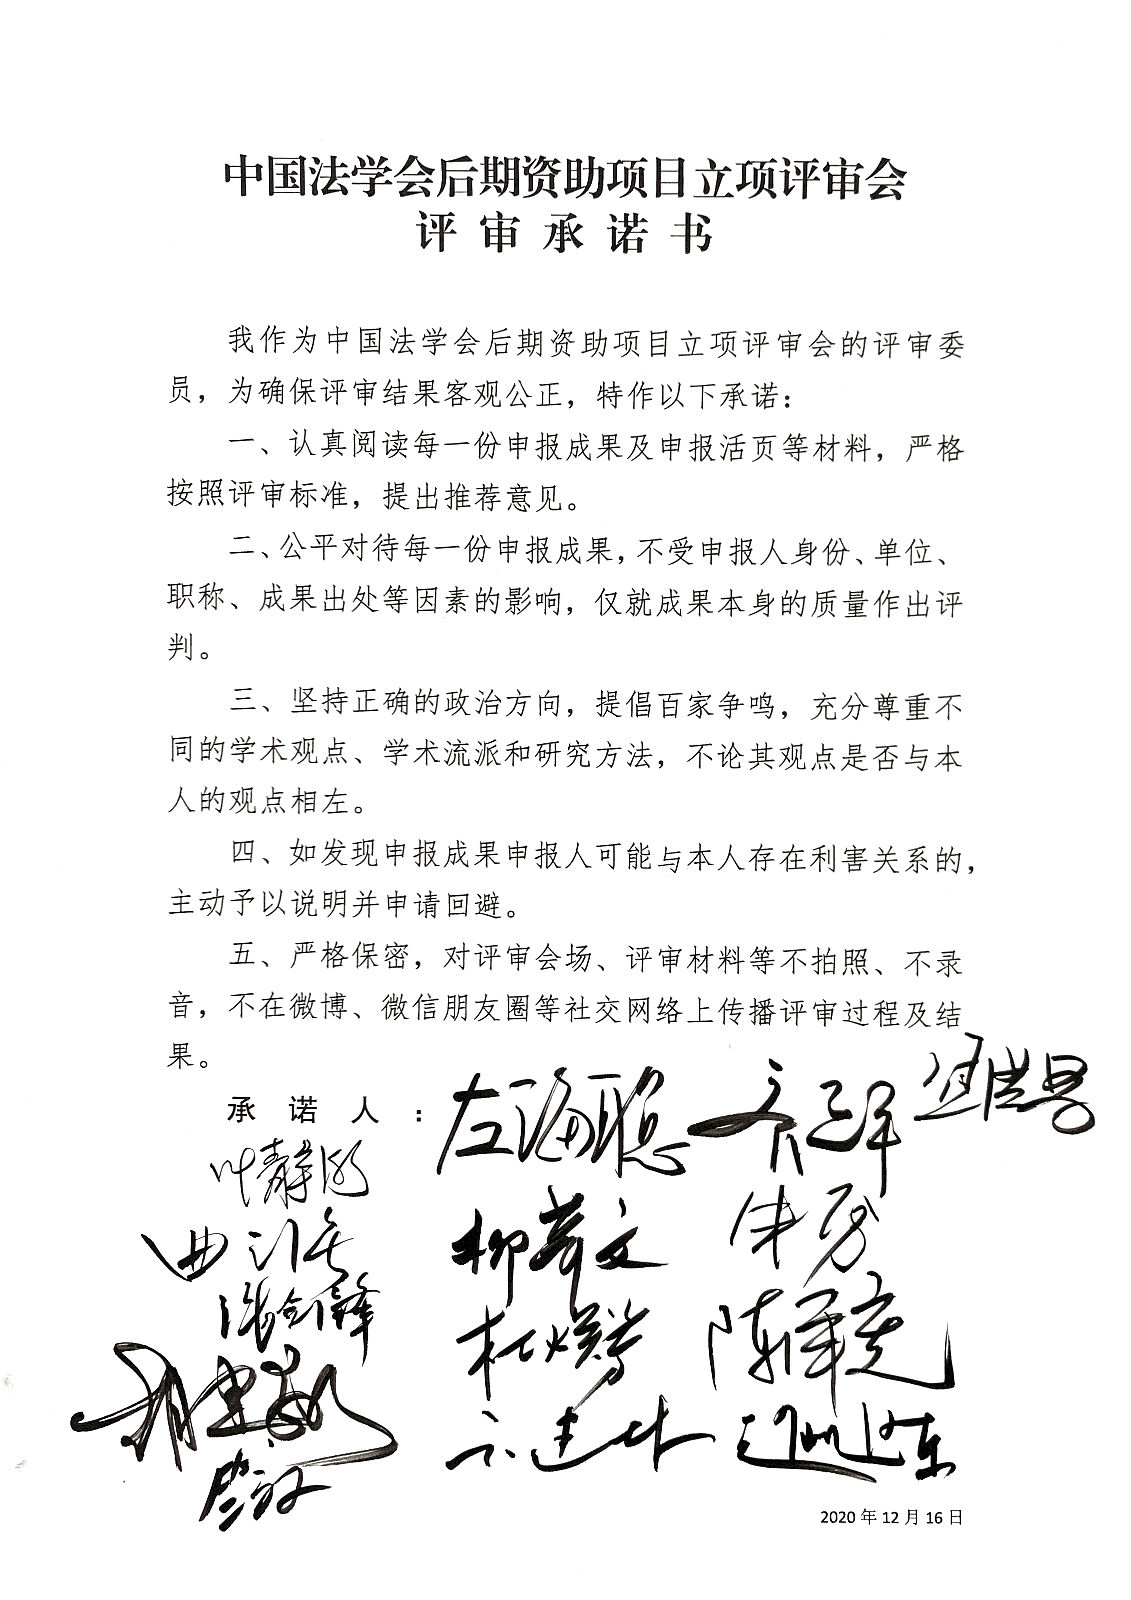 中国法学会后期资助项目立项评审会
评审承诺书
我作为中国法学会后期资助项目立项评审会的评审委
员，为确保评审结果客观公正，特作以下承诺：
一、认真阅读每一份申报成果及申报活页等材料，严格
按照评审标准，提出推荐意见。
二、公平对待每一份申报成果，不受申报人身份、单位、
职称、成果出处等因素的影响，仅就成果本身的质量作出评
判。
三、坚持正确的政治方向，提倡百家争鸣，充分尊重不
同的学术观点、学术流派和研究方法，不论其观点是否与本
人的观点相左。
四、如发现申报成果申报人可能与本人存在利害关系的，
主动予以说明并申请回避。
五、严格保密，对评审会场、评审材料等不拍照、不录
音，不在微博、微信朋友圈等社交网络上传播评审过程及结
果。
承诺人：
左海聪
叶静漪
柳华文
朱勇
2020年12月16日